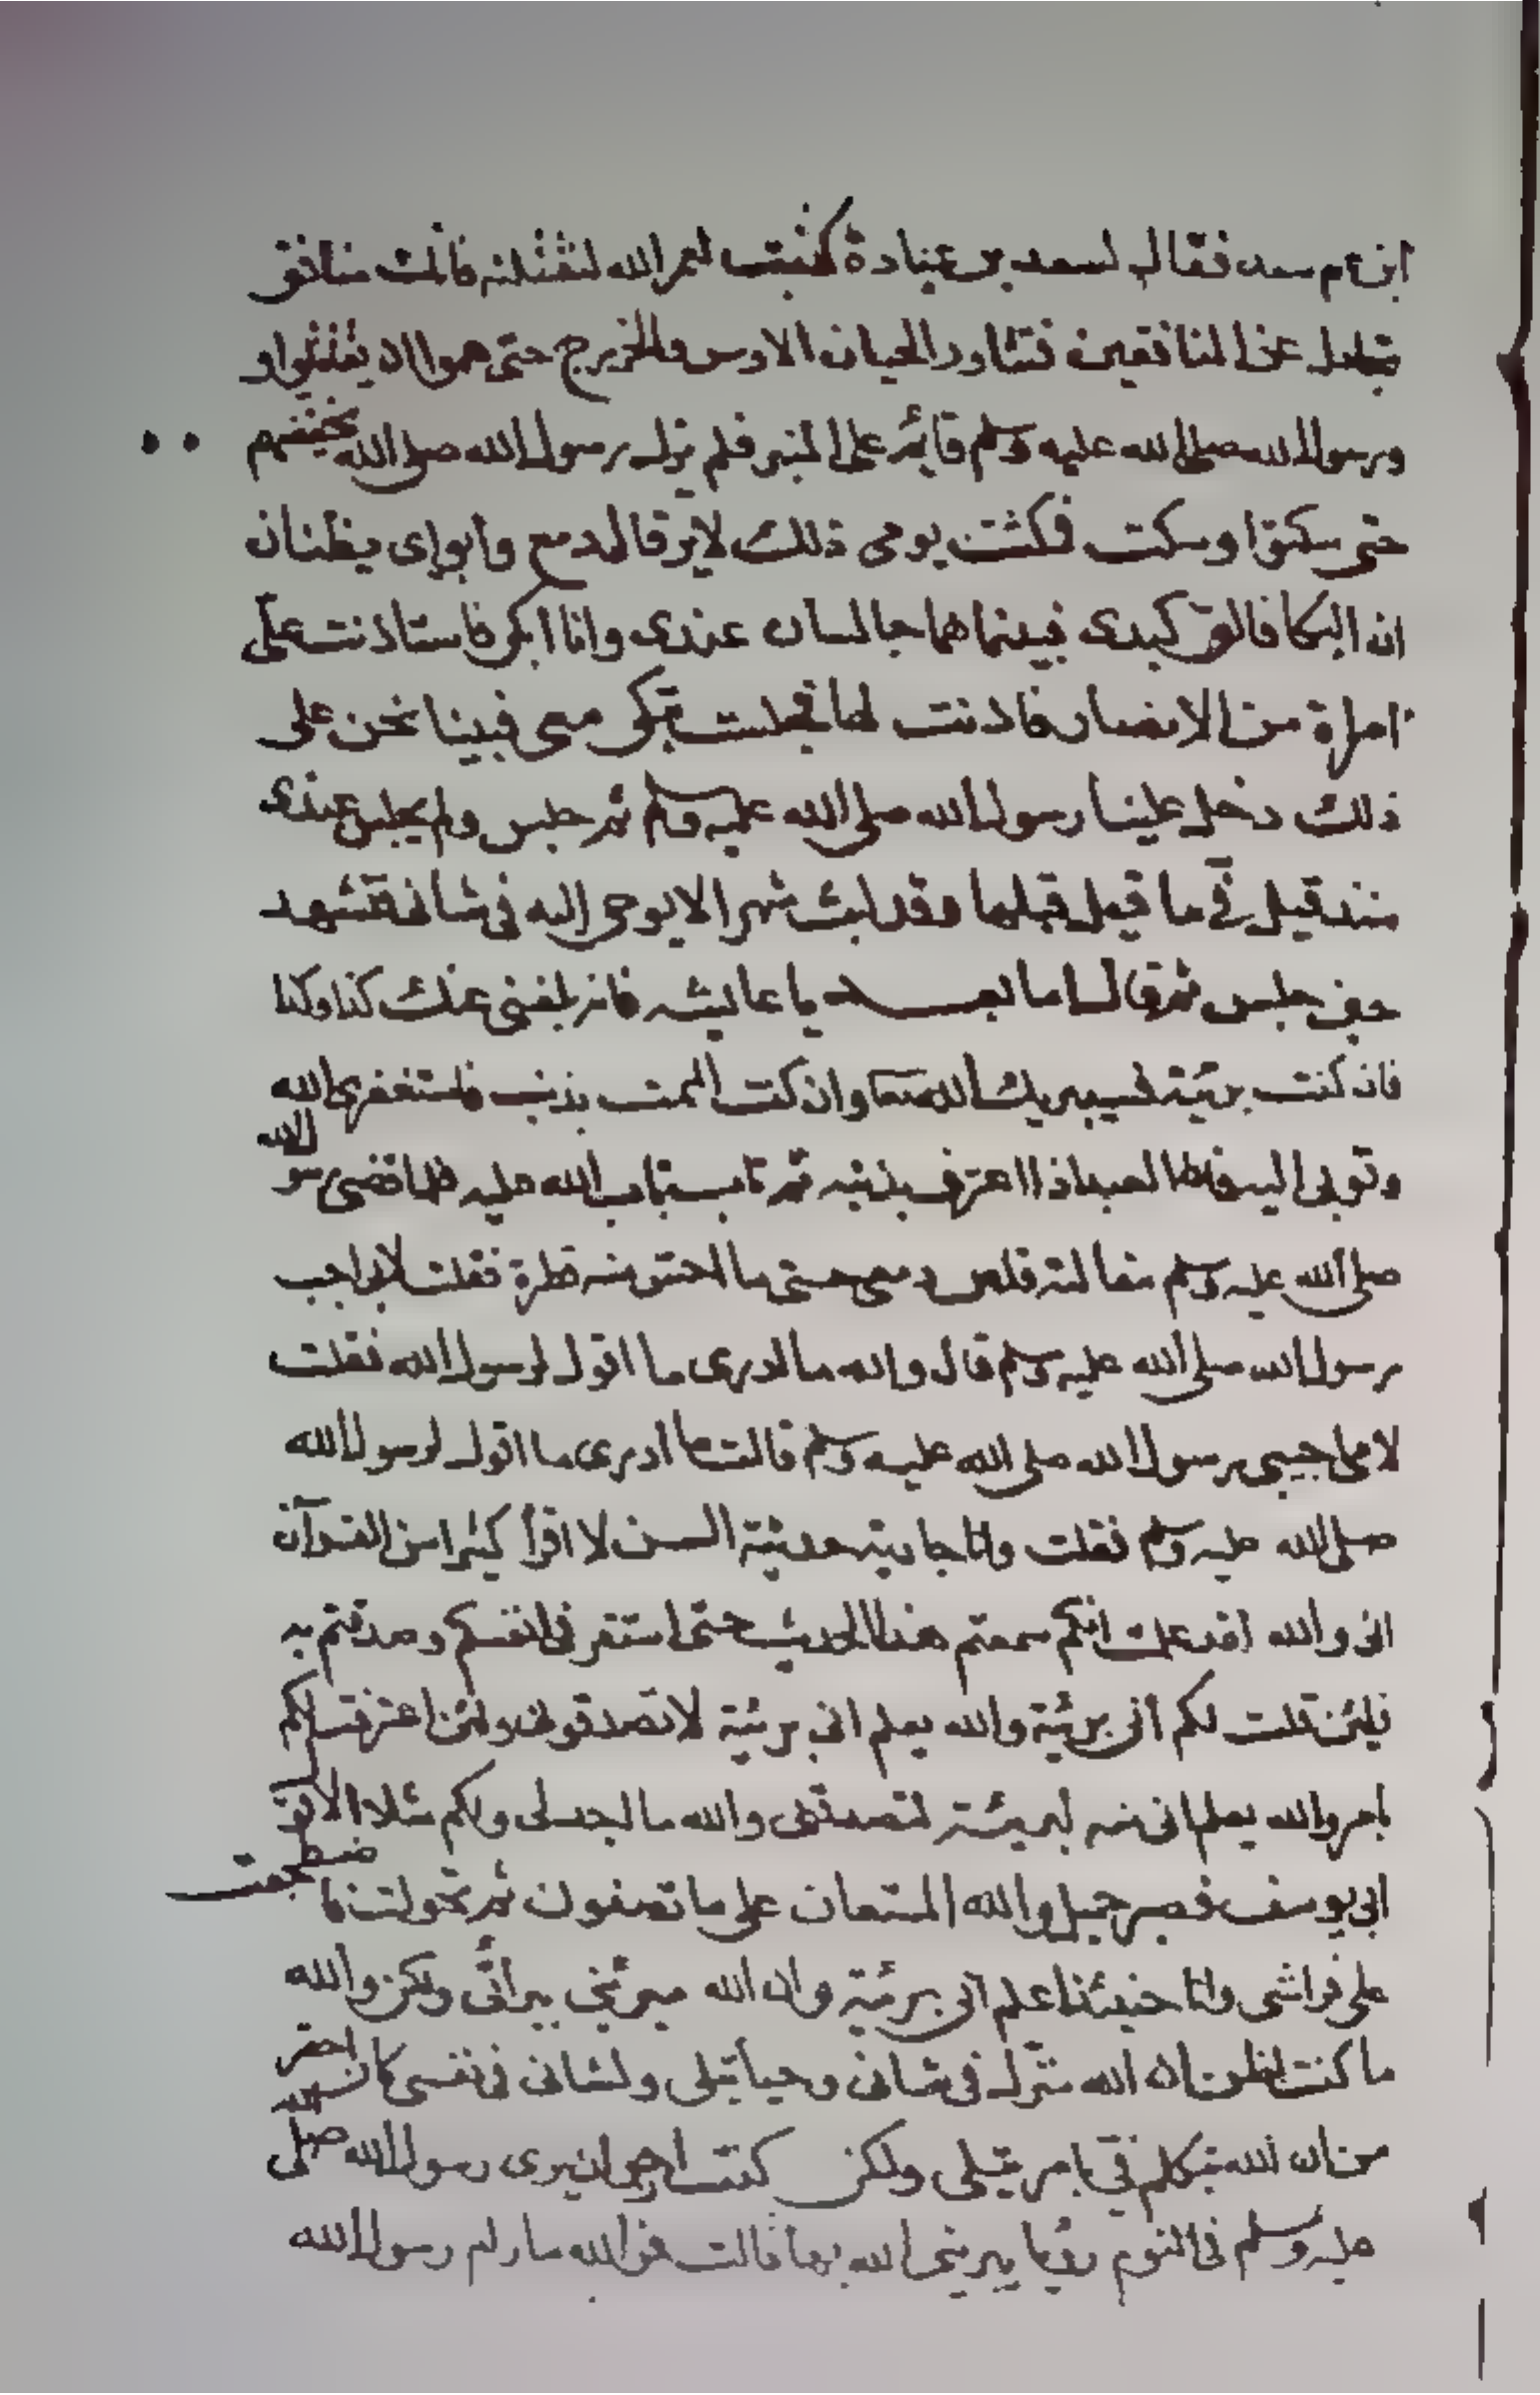 ابن عم سعد فقال لسعد بن عبادة كذبت لعمر الله لنقتلنه فانك منافق
تجادل عن المنافقين فتثاور الحيان الاوس والخزرج حتى هموا ان يقتتلوا و
ورسول الله صلى الله عليه وسلم قايم على المنبر فلم يزل رسول الله صلى الله يخفضهم
حتى سكتوا وسكت فمكثت يومى ذلك لا يرقا لى دمع وابواى يظنان
ان البكا فالق كبدى فبينما هما جالسان عندى وانا ابكى فاستاذنت على
امراة من الانصار فاذنت لها فجلست تبكى معى فبينا نحن على
ذلك دخل علينا رسول الله صلى الله عليه وسلم ثم جلس ولم يجلس عندى
منذ قيل فى ما قيل قبلها وقد لبث شهرا لا يوحى اليه فى شانى فتشهد
حين جلس ثم قال اما بعد يا عايشه فانه بلغنى عنك كذا وكذا
فان كنت بريئة فسيبريك الله تعا وان كنت الممت بذنب فاستغفرى الله
وتوبى اليه فان العبد اذا اعترف بذنبه ثم تاب تاب الله عليه فلما قضى رسول الله
صلى الله عليه وسلم مقالته قلص دمعى حتى ما احس منه قطرة فقلت لابى اجب
رسول الله صلى الله عليه وسلم قال والله ما ادرى ما اقول لرسول الله فقلت
لامى اجيبى رسول الله صلى الله عليه وسلم قالت ما ادرى ما اقول لرسول الله
صلى الله عليه وسلم فقلت وانا جارية حديثة السن لا اقرأ كثيرا من القرآن
انى والله لقد علمت انكم سمعتم هذا الحديث حتى استقر فى انفسكم وصدقتم به
فلئن قلت لكم انى بريئة والله يعلم انى بريئة لا تصدقونى ولئن اعترفت لكم
بامر والله يعلم انى منه لبريئة لتصدقنى والله ما اجد لى ولكم مثلا الا قول
ابى يوسف فصبر جميل والله المستعان على ما تصفون ثم تحولت فاضطجعت
على فراشى وانا حينئذ اعلم انى بريئة وان الله مبرئنى ببرأتى ولكن والله
ما كنت اظن ان الله منزل فى شانى وحيا يتلى ولشانى فى نفسى كان احقر
من ان الله يتكلم فى بامر يتلى ولكن كنت ارجو ان يرى رسول الله صلى الله
عليه وسلم فى النوم رؤيا يبرينى الله بها قالت فوالله ما رام رسول الله